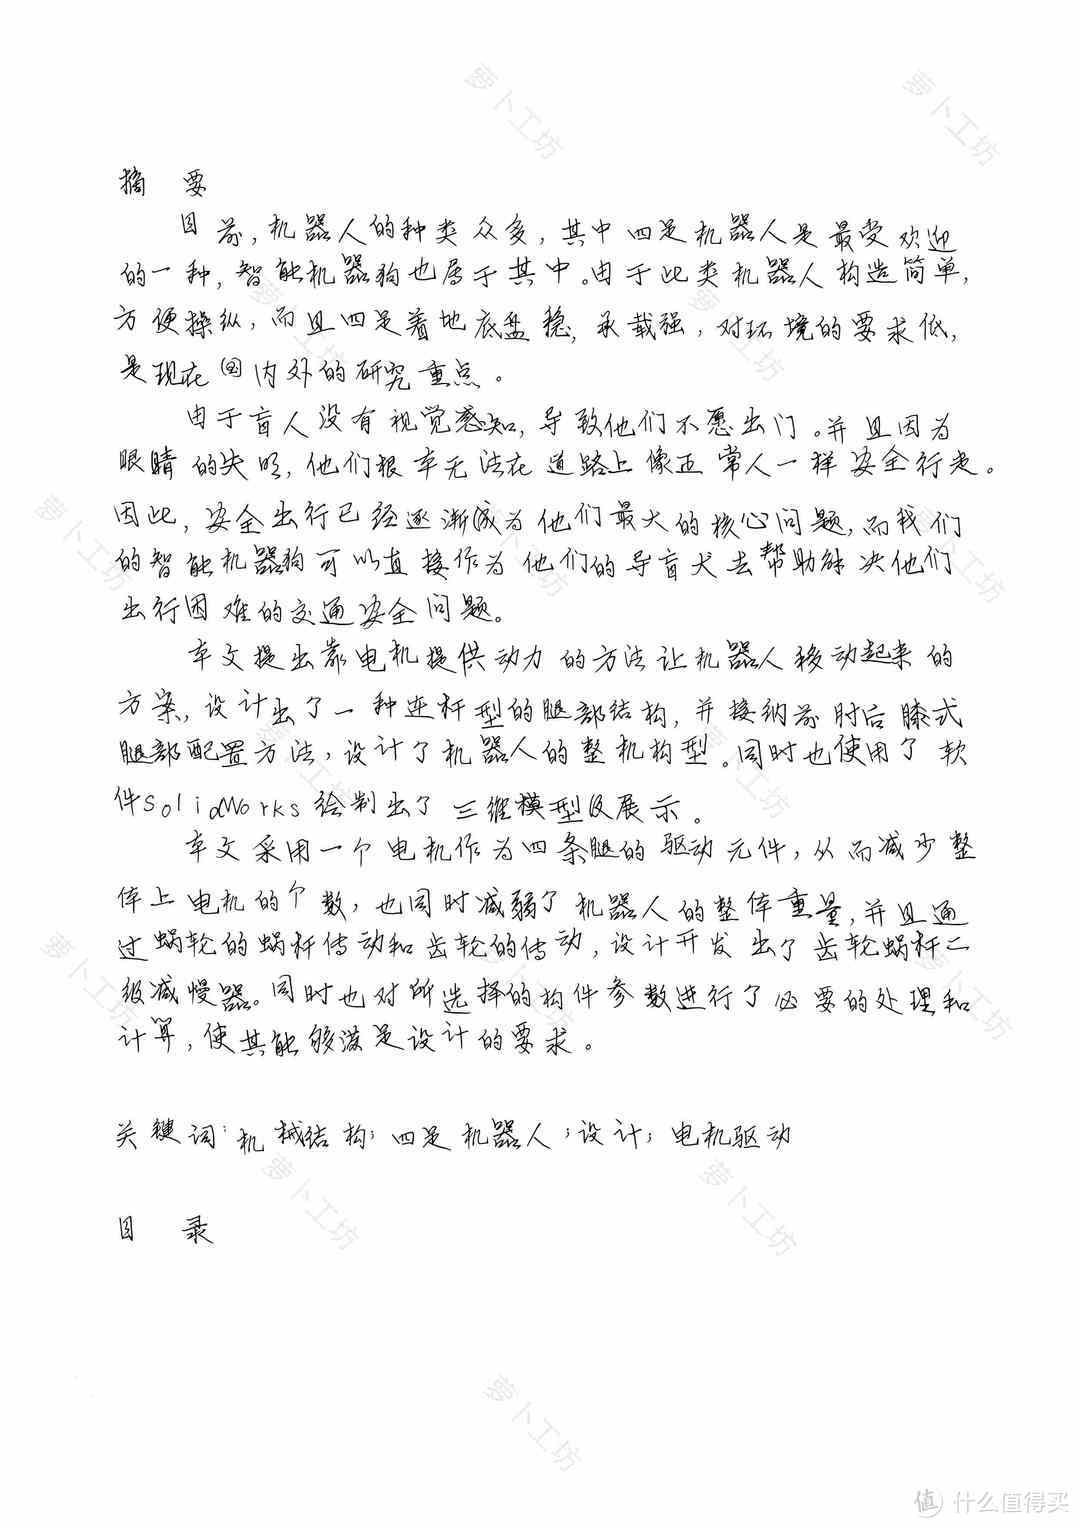 摘 要
目前，机器人的种类众多，其中四足机器人是最受欢迎
的一种，智能机器狗也属于其中。由于此类机器人构造简单，
方便操纵，而且四足着地底盘稳，承载强，对环境的要求低，
是现在国内外的研究重点。
由于盲人没有视觉感知，导致他们不愿出门。并且因为
眼睛的失明，他们根本无法在道路上像正常人一样安全行走。
因此，安全出行已经逐渐成为他们最大的核心问题，而我们
的智能机器狗可以直接作为他们的导盲犬去帮助解决他们
出行困难的交通安全问题。
本文提出靠电机提供动力的方法让机器人移动起来的
方案，设计出了一种连杆型的腿部结构，并接纳前肘后膝式
腿部配置方法，设计了机器人的整机构型。同时也使用了软
件SolidWorks绘制出了三维模型及展示。
本文采用一个电机作为四条腿的驱动元件，从而减少整
体上电机的个数，也同时减弱了机器人的整体重量，并且通
过蜗轮的蜗杆传动和齿轮的传动，设计开发出了齿轮蜗杆二
级减慢器。同时也对所选择的构件参数进行了必要的处理和
计算，使其能够满足设计的要求。
关键词：机械结构；四足机器人；设计；电机驱动
目 录
萝卜工坊
值 什么值得买